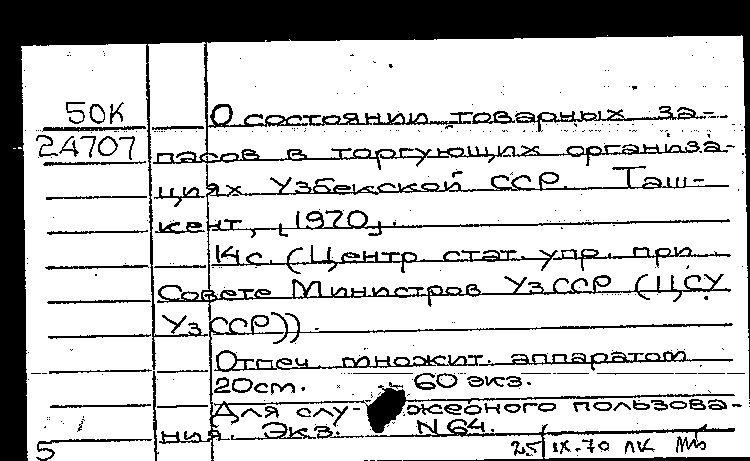 50К О состоянии товарных за-
24707 пасов в торгующих организа-
циях Узбекской ССР. Таш-
кент, [1970].
14с. (Центр. стат. упр. при
Совете Министров УзССР (ЦСУ
УзССР))
Отпеч. множит. аппаратом
20см. 60 экз.
Для слу-жебного пользова-
ния. Экз. N64.
5 25/IX-70 ЛК